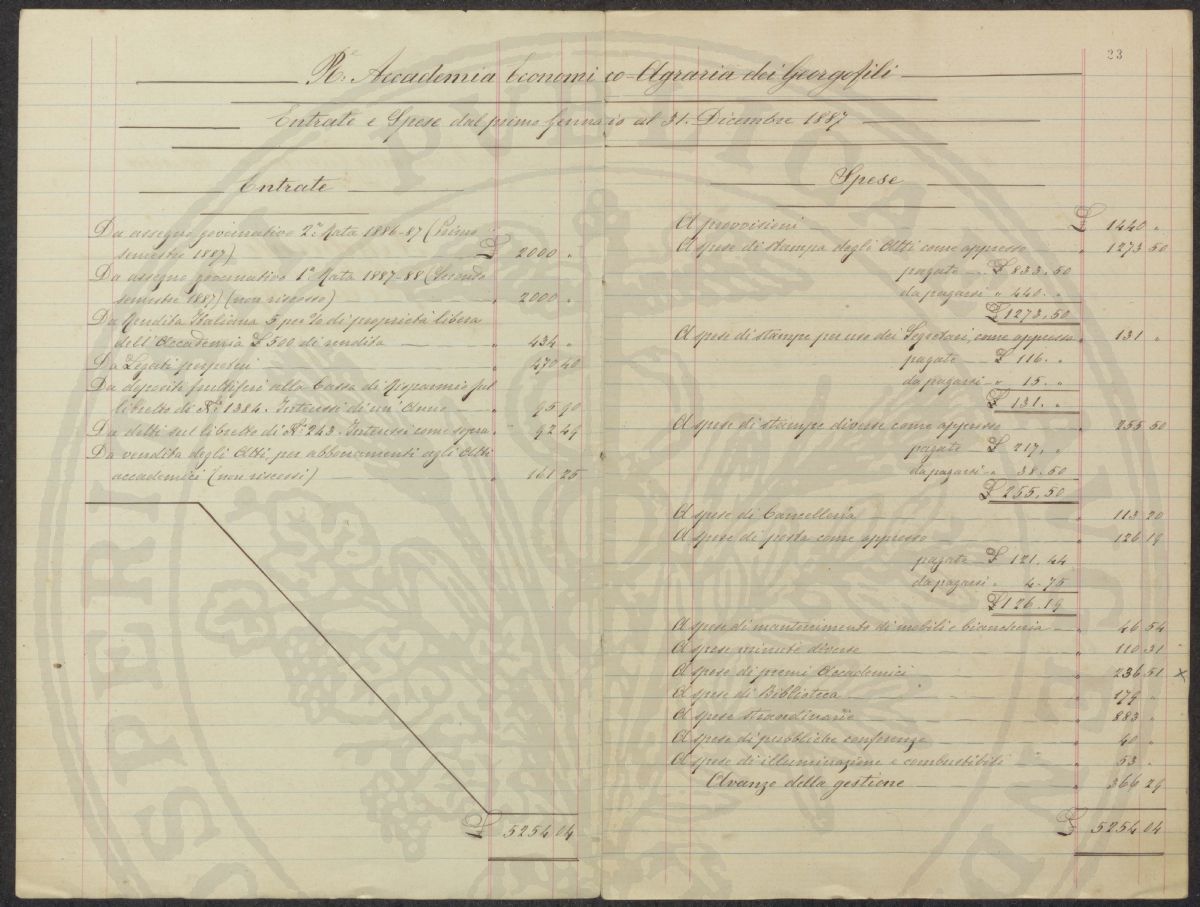 23
R. Accademia Economico-Agraria dei Georgofili
Entrate e Spese dal primo Gennaio al 31. Dicembre 1887
Entrate
Da assegno governativo 2ª Rata 1886-87 (Primo
semestre 1887) £ 2000 "
Da assegno governativo 1ª Rata 1887-88 (Secondo
semestre 1887) (non riscosso) " 2000 "
Da Rendita Italiana 5 per % di proprietà libera
dell'Accademia £ 500 di rendita " 434 "
Da Legati perpetui " 470 40
Da depositi fruttiferi alla Cassa di Risparmio sul
libretto di N.º 1384. Interessi di un'Anno " 95 90
Da detti sul libretto di N.º 243. Interessi come sopra " 92 49
Da vendita degli Atti per abbonamenti agli Atti
accademici (non riscossi) " 161 25
£ 5254 04
Spese
A provvisioni £ 1440 "
A spese di stampa degli Atti come appresso " 1273 50
pagate £ 833.50
da pagarsi " 440. "
£ 1273.50
A spese di stampe per uso dei Segretari, come appresso " 131 "
pagate £ 116. "
da pagarsi " 15. "
£ 131. "
A spese di stampe diverse come appresso " 255 50
pagate £ 217. "
da pagarsi " 38.50
£ 255.50
A spese di Cancelleria " 113 20
A spese di posta come appresso " 126 19
pagate £ 121.44
da pagarsi " 4.75
£ 126.19
A spese di mantenimento di mobili e biancheria " 46 54
A spese minute diverse " 110 31
A spese di premi Accademici " 236 51 x
A spese di Biblioteca " 179 "
A spese straordinarie " 883 "
A spese di pubbliche conferenze " 40 "
A spese di illuminazione e combustibili " 53 "
Avanzo della gestione " 366 29
£ 5254 04